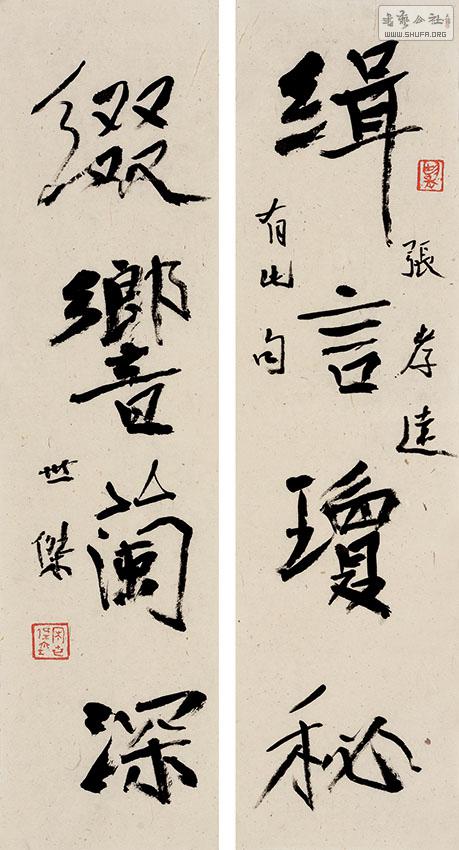 書藝公社
WWW.SHUFA.ORG
緝言瓊秘
張孝達
有此句
綴響蘭深
世傑